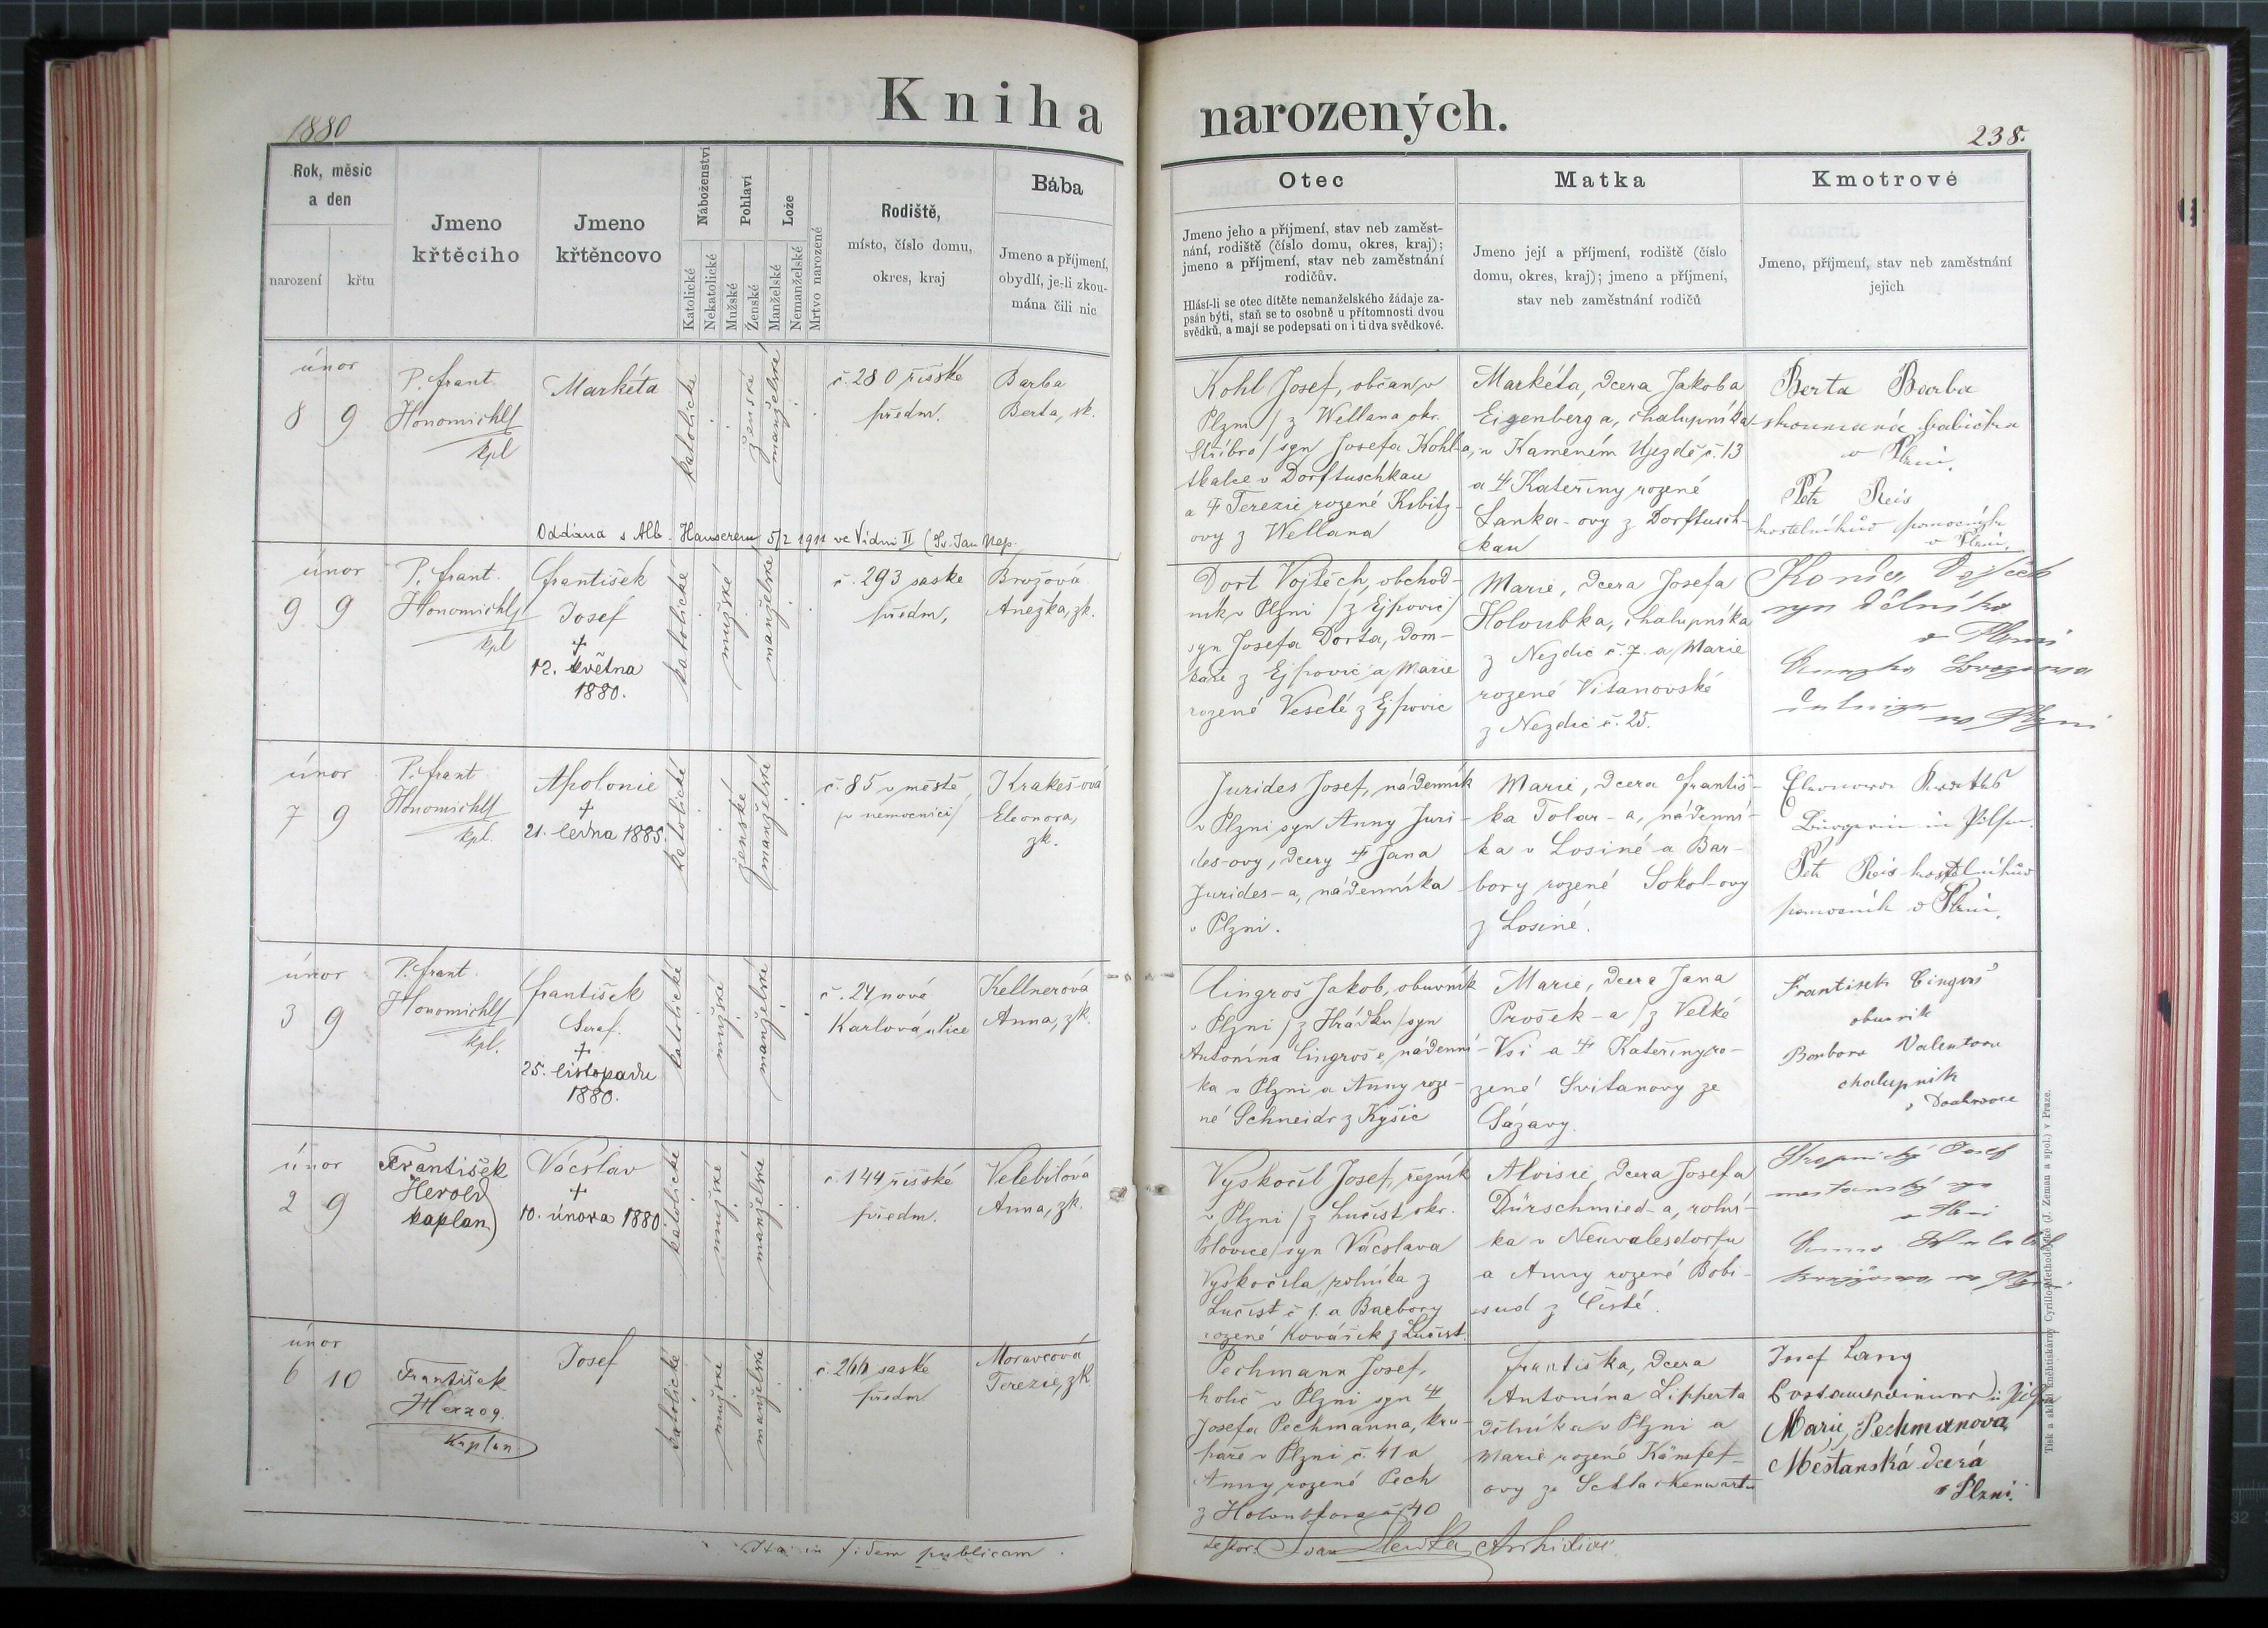 1880
Kniha
narozených.
238.
Rok, měsíc
a den
narození
křtu
Jmeno
křtěcího
Jmeno
křtěncovo
Náboženství
Katolické
Nekatolické
Pohlaví
Mužské
Ženské
Lože
Manželské
Nemanželské
Mrtvo narozené
Rodiště,
místo, číslo domu,
okres, kraj
Bába
Jmeno a příjmení,
obydlí, je-li zkou-
mána čili nic
Otec
Jmeno jeho a příjmení, stav neb zaměst-
nání, rodiště (číslo domu, okres, kraj);
jmeno a příjmení, stav neb zaměstnání
rodičův.
Hlásí-li se otec dítěte nemanželského žádaje za-
psán býti, staň se to osobně u přítomnosti dvou
svědků, a mají se podepsati on i ti dva svědkové.
Matka
Jmeno její a příjmení, rodiště (číslo
domu, okres, kraj); jmeno a příjmení,
stav neb zaměstnání rodičů
Kmotrové
Jmeno, příjmení, stav neb zaměstnání
jejich
únor
8 9
P. frant.
Honomichl
kpl
Markéta
katolické
ženské
manželské
č. 280 říšské
předm.
Barba
Berta, zk.
Oddána s Alb. Hauserem 5/2 1911 ve Vídni II (Sv. Jan Nep.
Kohl Josef, občan v
Plzni / z Wellana okr.
Stříbro / syn Josefa Kohl-a,
tkalce v Dorftuschkau
a Terezie rozené Kibitz-
ovy z Wellana
Markéta, dcera Jakoba
Eigenberg a, chalupníka
v Kameném Ujezdě č. 13
a Kateřiny rozené
Lanka-ovy z Dorftusch-
kau
Berta Barba
zkoumaná babička
v Plzni.
Petr Reis
kostelníkův pomocník
v Plzni.
únor
9 9
P. frant.
Honomichl
kpl
František
Josef
†
12. května
1880.
katolické
mužské
manželské
č. 293 saské
předm.
Brožová
Anežka, zk.
Dort Vojtěch, obchod-
ník v Plzni / z Ejpovic /
syn Josefa Dorta, dom-
káře z Ejpovic a Marie
rozené Veselé z Ejpovic
Marie, dcera Josefa
Holoubka, chalupníka
z Nezdic č. 7. a Marie
rozené Višanovské
z Nezdic č. 25.
syn dělníka
v Plzni
únor
7 9
P. frant
Honomichl
kpl.
Apolonie
†
21. ledna 1885.
katolické
ženské
manželské
č. 85 v městě
/v nemocnici/
Krakeš-ová
Eleonora,
zk.
Jurides Josef, nádenník
v Plzni syn Anny Juri-
des-ovy, dcery Jana
Jurides-a, nádenníka
v Plzni.
Marie, dcera Františ-
ka Tolar-a, nádenní-
ka v Losiné a Bar-
bory rozené Sokol-ovy
z Losiné.
Bürgerin in Pilsen.
Petr Reis kostelníkův
pomocník v Plzni.
únor
3 9
P. frant.
Honomichl
kpl.
František
Seraf.
†
25. listopadu
1880.
katolické
mužské
manželské
č. 24 nová
Karlova ulice
Kellnerová
Anna, zk.
Cingroš Jakob, obuvník
v Plzni / z Hrádku / syn
Antonína Cingroše, nádenní-
ka v Plzni a Anny roze-
né Schneidr z Kyšic
Marie, dcera Jana
Prošek-a / z Velké
Vsi a Kateřiny ro-
zené Svitanovy ze
Sázavy.
Frantisek Cingroš
obuvník
Barbora Valentova
chalupnik
únor
2 9
František
Herold
kaplan
Vácslav
†
10. února 1880
katolické
mužské
manželské
č. 144 říšské
předm.
Velebilová
Anna, zk.
Vyskočil Josef, řezník
v Plzni / z Lučist, okr.
Blovice / syn Vácslava
Vyskočila, rolníka z
Lučist č 1. a Barbory
rozené Kovářík z Lučist.
Aloisie, dcera Josefa
Dürschmied-a, rolní-
ka v Neuvalesdorfu
a Anny rozené Bobi-
sud z Čisté.
únor
6 10
František
Herzog.
Kaplan
Josef
katolické
mužské
manželské
č. 266 saské
předm
Moravcová
Terezie, zk
Pechmann Josef,
holič v Plzni syn
Josefa Pechmanna, kru-
paře v Plzni č. 41 a
Anny rozené Pech
z Holoubkova č 40
Františka, dcera
Antonína Lipperta
dělníka v Plzni a
Marie rozené Kämpfef-
ovy ze Schlackenwarth
Josef Lang
Marie Pechmanova
Měšťanská dcera
v Plzni.
Ita in fidem publicam.
Archidiac.
Tisk a sklad Knihtiskárny Cyrillo-Methodějské (J. Zeman a spol.) v Praze.